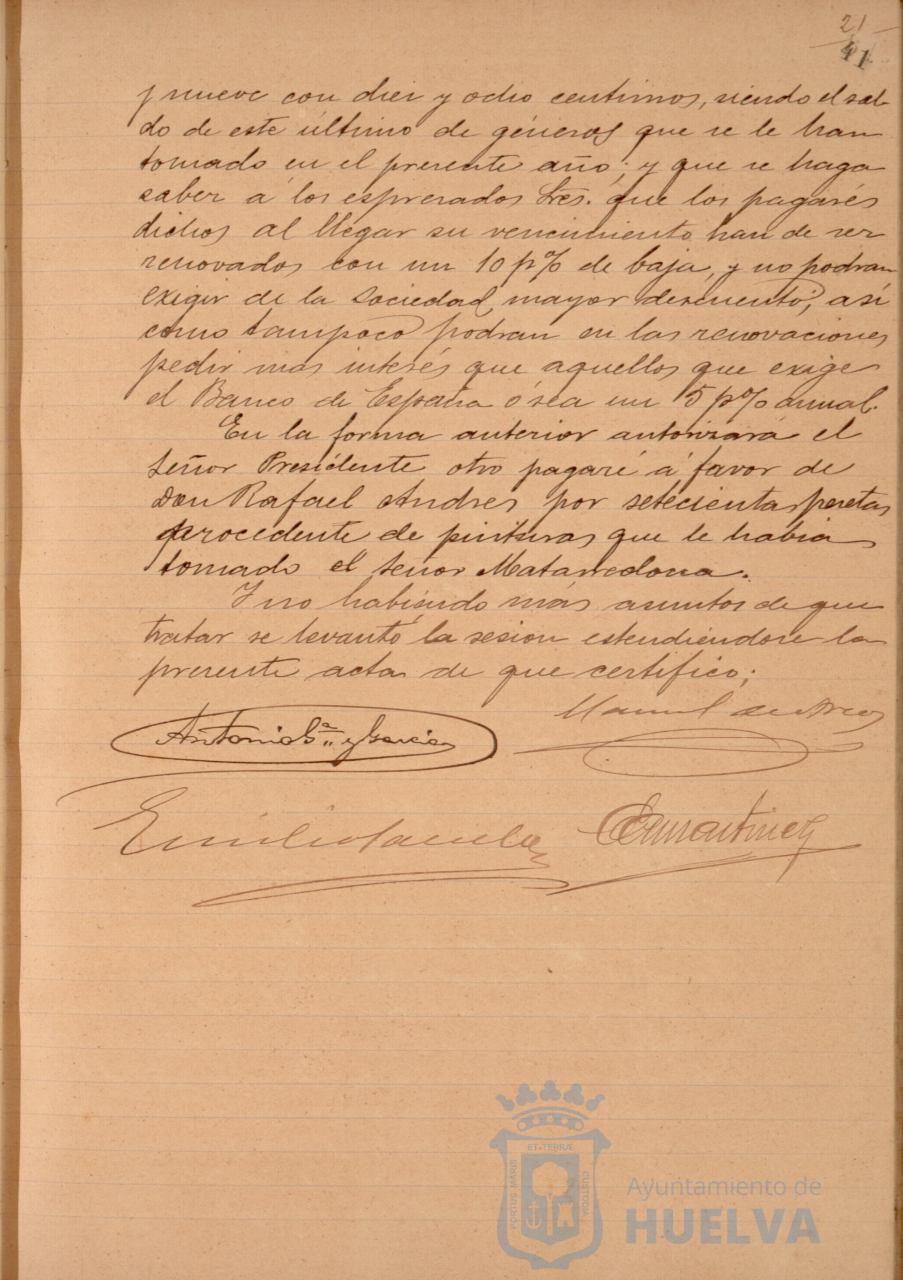 21
41
y nueve con diez y ocho centimos, siendo el sal-
do de este último de géneros que se le han
tomado en el presente año; y que se haga
saber á los espresados Sres. que los pagarés
dichos al llegar su vencimiento han de ser
renovados con un 10 p% de baja, y no podran
exigir de la Sociedad mayor descuento; así
como tampoco podran en las renovaciones
pedir mas interés que aquellos que exige
el Banco de España ó sea un 5 p% anual.
En la forma anterior autorizará el
Señor Presidente otro pagaré á favor de
Don Rafael Andres por setecientas pesetas
procedente de pinturas que le habia
tomado el Señor Matarredona.
Y no habiendo mas asuntos de que
tratar se levantó la sesion estendiéndose la
presente acta de que certifico;
Manuel de
Antonio Gª y Garcia
Emilio
Martinez
ET·TERRÆ
PORTUS MARIS
CUSTODIA
Ayuntamiento de
HUELVA